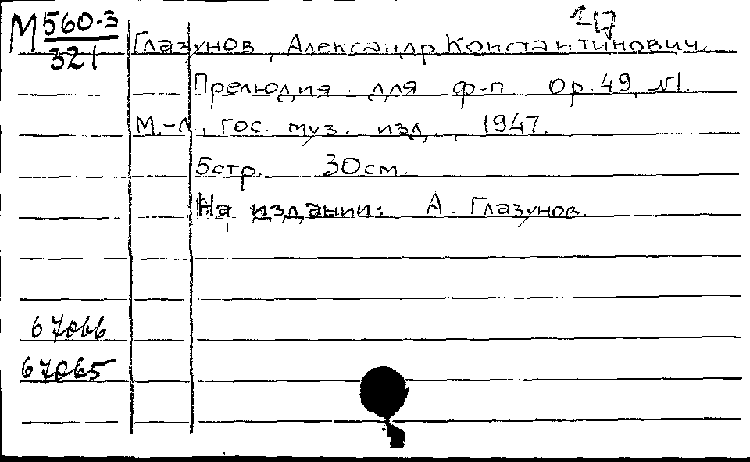 М 560-3
321
Глазунов, Александр Константинович.
Прелюдия для ф-п. ор. 49, №1.
М.-Л., гос. муз. изд., 1947.
5стр. 30см.
На издании: А. Глазунов.
67066
67065